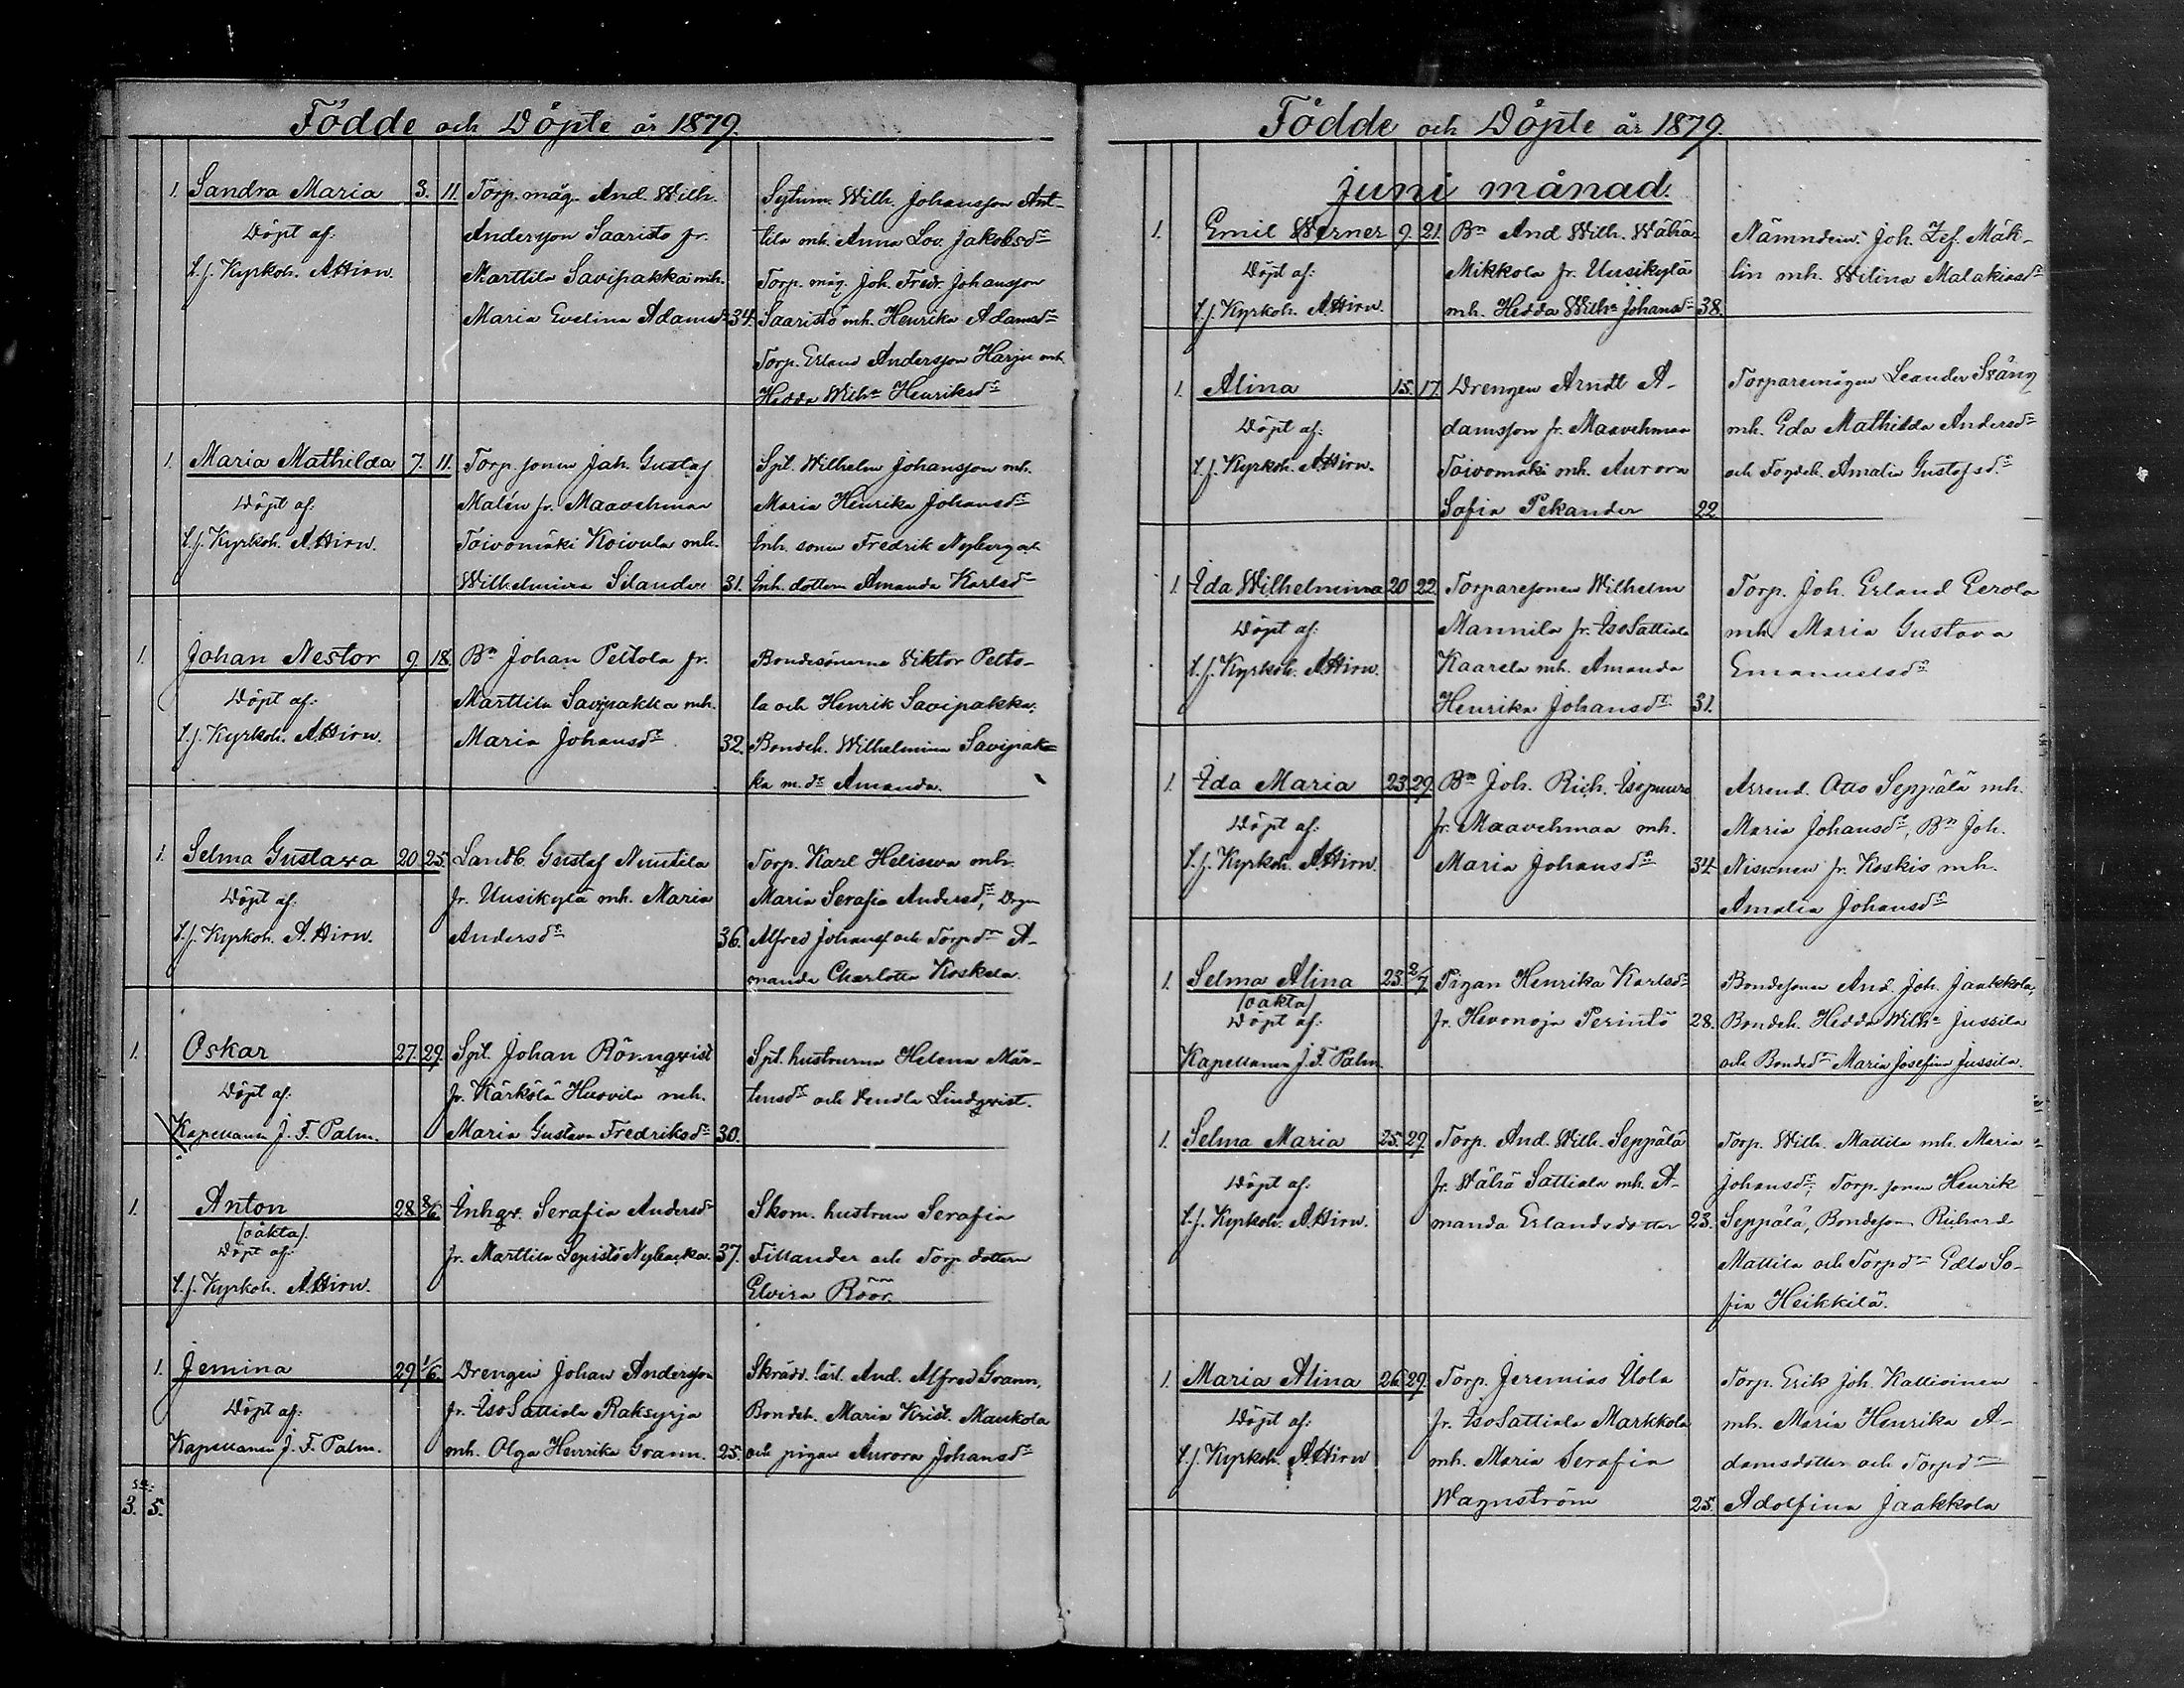 Födde och Döpte år 1879.
1. Sandra Maria 3. 11. Torp. måg. And. Wilh. Sytnm. Wilh. Johansson Ant-
Döpt af: Andersson Saaristo fr. tila mh. Anna Lov. Jakobsdr
t.f. Kyrkoh. A. Hirn. Marttila Savipakka mh. Torp. måg. Joh. Fredr. Johansson
Maria Evelina Adamsdr 34. Saaristo mh. Henrika Adamsdr
Torp. Erland Andersson Harju mh.
Hedda Wilhna Henriksdr
1. Maria Mathilda 7. 11. Torp. sonen Joh. Gustaf Spl. Wilhelm Johansson mh.
Döpt af: Malén fr. Maavehmaa Maria Henrika Johansdr
t.f. Kyrkoh. A. Hirn. Toivomäki Koivula mh. Inh. sonen Fredrik Nyberg och
Wilhelmina Silander 31. Inh. dottern Amanda Karlsdr
1. Johan Nestor 9. 18. Bn Johan Peltola fr. Bondesönerna Viktor Pelto-
Döpt af: Marttila Savipakka mh. la och Henrik Savipakka,
t.f. Kyrkoh. A. Hirn. Maria Johansdr 32. Bondeh. Wilhelmina Savipak-
ka m. dr Amanda.
1. Selma Gustava 20. 25. Landb. Gustaf Nuutila Torp. Karl Heliswa mh.
Döpt af: fr. Uusikylä mh. Maria Maria Serafia Andersdr, Drgn
t.f. Kyrkoh. A. Hirn. Andersdr 36. Alfred Johansf och Torpdr A-
manda Charlotta Koskela.
1. Oskar 27. 29. Spl. Johan Rönnqvist Spl. hustrurna Helena Mår-
Döpt af: fr. Kärkölä Huovila mh. tensdr och Vendla Lindqvist.
Kapellanen J. F. Palm. Maria Gustava Fredriksdr 30.
1. Anton 28. 8/6. Inhqv. Serafia Andersdr Skom. hustrun Serafia
(oäkta).
Döpt af: fr. Marttila Sepistö Nybacka. 37. Fillander och Torp. dottern
t.f. Kyrkoh. A. Hirn. Elvira Röör.
1. Jemina 29. 1/6. Drengen Johan Andersson Skrädd. lärl. And. Alfred Grann,
Döpt af: fr. IsoSattiala Raksyrja Bondeh. Maria Krist. Maukola
Kapellanen J. F. Palm. mh. Olga Henrika Grann. 25. och pigan Aurora Johansdr
S:a:
3. 5.
Födde och Döpte år 1879.
Juni månad.
1. Emil Werner 9. 21. Bn And. Wilh. Wähä- Nämndem. Joh. Zef. Mäk-
Döpt af: Mikkola fr. Uusikylä lin mh. Wilina Malakiasdr
t.f. Kyrkoh. A. Hirn. mh. Hedda Wilhna Johansdr 38.
1. Alina 15. 17. Drengen Arndt A- Torparemågen Leander Stång
Döpt af: damsson fr. Maavehmaa mh. Eda Mathilda Andersdr
t.f. Kyrkoh. A. Hirn. Toivomäki mh. Aurora och Fogdeh. Amalia Gustafsdr
Sofia Pekander 22
1. Ida Wilhelmina 20 22. Torparesonen Wilhelm Torp. Joh. Erland Eerola
Döpt af: Mannila fr. IsoSattiala mh. Maria Gustava
t.f. Kyrkoh. A. Hirn. Kaarela mh. Amanda Emanuelsdr
Henrika Johansdr 31.
1. Ida Maria 23. 29. Bn Joh. Rich. Isopuuro Arrend. Otto Seppälä mh.
Döpt af: fr. Maavehmaa mh. Maria Johansdr, Bn Joh.
t.f. Kyrkoh. A. Hirn. Maria Johansdr 34. Nisonen fr. Koskis mh.
Amalia Johansdr
1. Selma Alina 23. 2/7 Pigan Henrika Karlsdr Bondesonen And. Joh. Jaakkola,
(oäkta)
Döpt af: fr. Hevonoja Perintö 28. Bondeh. Hedda Wilhna Jussila
Kapellanen J. F. Palm. och Bondedr Maria Josefina Jussila.
1. Selma Maria 25. 29. Torp. And. Wilh. Seppälä Torp. Wilh. Mattila mh. Maria
Döpt af: fr. Wähä Sattiala mh. A- Johansdr, Torp. sonen Henrik
t.f. Kyrkoh. A. Hirn. manda Erlandsdotter 23. Seppälä, Bondeson Richard
Mattila och Torpdr Edla So-
fia Heikkilä.
1. Maria Alina 26. 29. Torp. Jeremias Uola Torp. Erik Joh. Kattioinen
Döpt af: fr. IsoSattiala Markkola mh. Maria Henrika A-
t.f. Kyrkoh. A. Hirn mh. Maria Serafia damsdotter och Torpdr
Wagnström 25. Adolfina Jaakkola